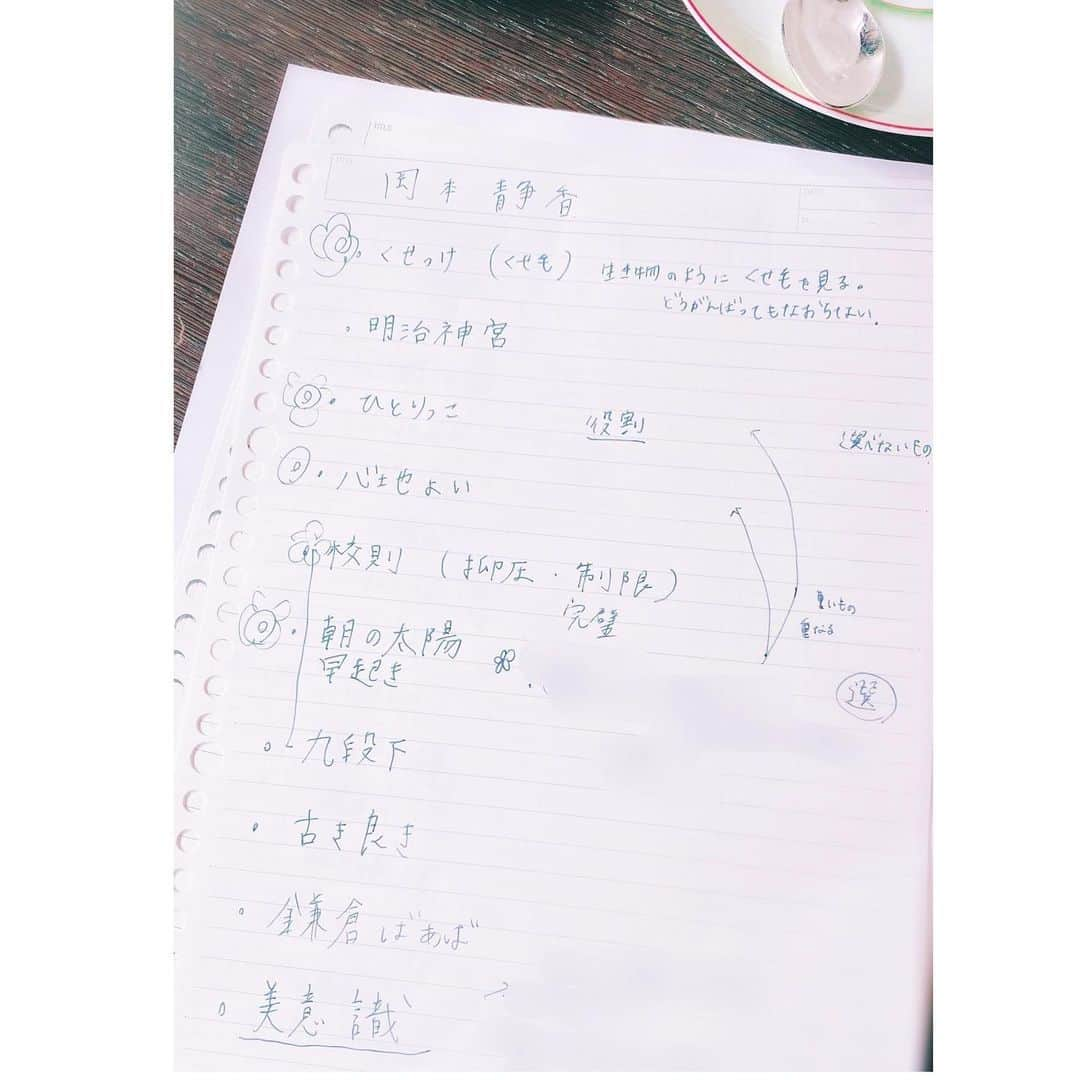 岡本静香
・くせっけ（くせ毛） 生き物のようにくせ毛を見る。
どうがんばってもなおらない。
・明治神宮
・ひとりっこ 役割 選べないもの
・心地よい
校則（抑圧・制限）
完璧
重いもの
重なる
・朝の太陽
早起き
選
・九段下
・古き良き
・鎌倉ばあば
・美意識